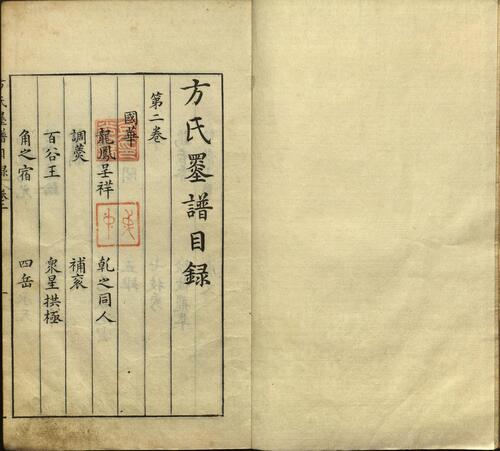 方氏墨譜目録
第二卷
國華
龍鳳呈祥 乾之同人
調羹 補袞
百谷王 衆星拱極
角之宿 四岳
方氏墨譜目録 卷二